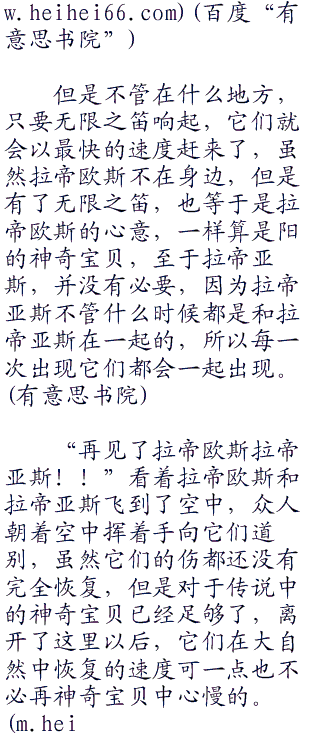 w.heihei66.com)(百度“有
意思书院”)
但是不管在什么地方，
只要无限之笛响起，它们就
会以最快的速度赶来了，虽
然拉帝欧斯不在身边，但是
有了无限之笛，也等于是拉
帝欧斯的心意，一样算是阳
的神奇宝贝，至于拉帝亚
斯，并没有必要，因为拉帝
亚斯不管什么时候都是和拉
帝亚斯在一起的，所以每一
次出现它们都会一起出现。
(有意思书院)
“再见了拉帝欧斯拉帝
亚斯！！”看着拉帝欧斯和
拉帝亚斯飞到了空中，众人
朝着空中挥着手向它们道
别，虽然它们的伤都还没有
完全恢复，但是对于传说中
的神奇宝贝已经足够了，离
开了这里以后，它们在大自
然中恢复的速度可一点也不
必再神奇宝贝中心慢的。
(m.hei